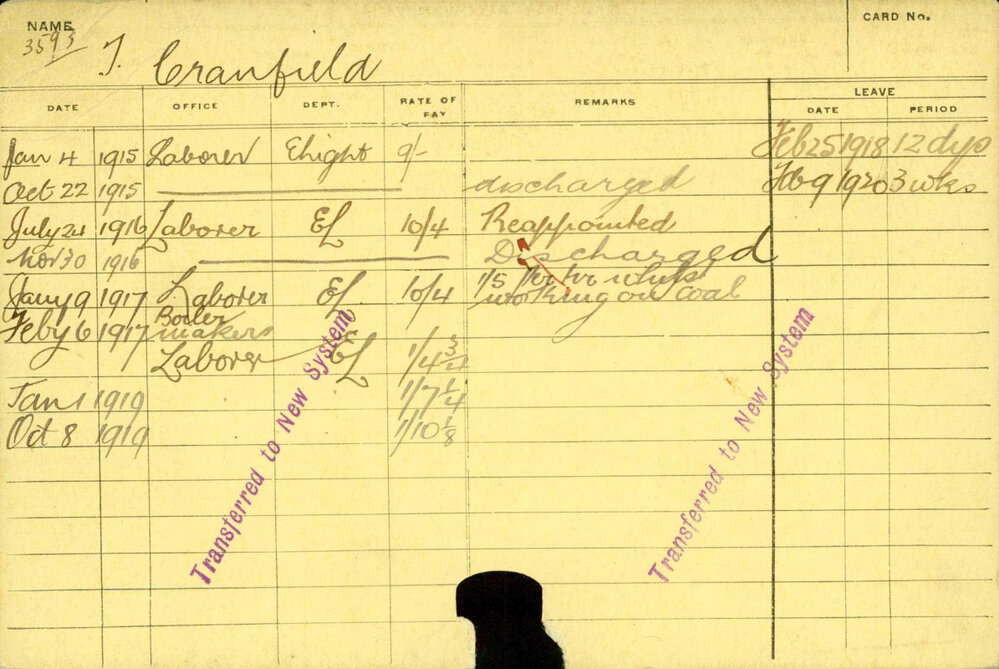 NAME
CARD No.
3593
T. Cranfield
DATE OFFICE DEPT. RATE OF PAY REMARKS LEAVE
DATE PERIOD
Jan 4 1915 Laborer Elight 9/- Feb 25 1918 12 dys
Oct 22 1915 discharged Feb 9 1920 3 wks
July 24 1916 Laborer EL 10/4 Reappointed
Nov 30 1916 Discharged
Jany 9 1917 Laborer EL 10/4 1/5 per hr whilst working on coal
Feby 6 1917 Boiler makers
Laborer EL 1/4 3/4
Jan 1 1919 1/7 1/4
Oct 8 1919 1/10 1/8
Transferred to New System
Transferred to New System